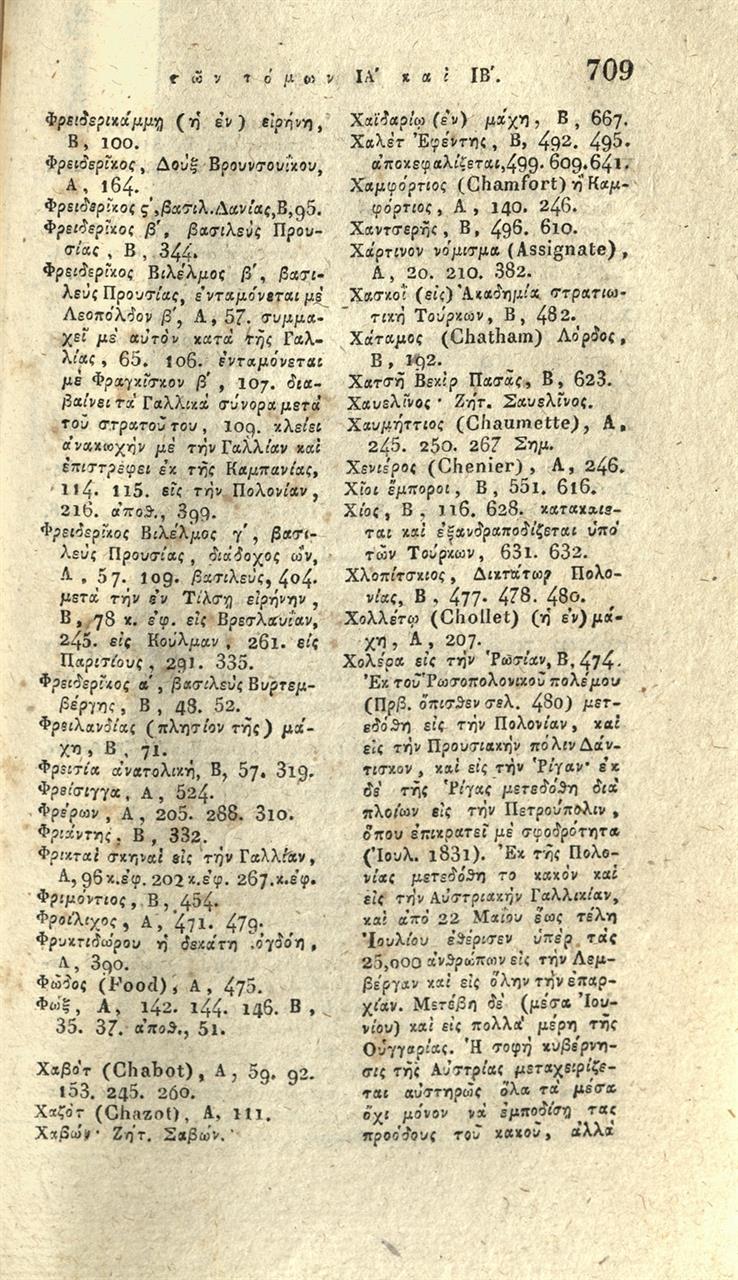 τῶν τόμων ΙΑ' καὶ ΙΒ'. 709
Φρειδερικάμμῃ (ἡ ἐν) εἰρήνη,
Β, 100.
Φρειδερῖκος, Δοὺξ Βρουνσουΐκου,
Α, 164.
Φρειδερῖκος ς', βασιλ. Δανίας, Β, 95.
Φρειδερῖκος β', βασιλεὺς Πρου-
σίας, Β, 344.
Φρειδερῖκος Βιλέλμος β', βασι-
λεὺς Προυσίας, ἐνταμόνεται μὲ
Λεοπόλδον β', Α, 57. συμμα-
χεῖ μὲ αὐτὸν κατὰ τῆς Γαλ-
λίας, 65. 106. ἐνταμόνεται
μὲ Φραγκῖσκον β', 107. δια-
βαίνει τὰ Γαλλικὰ σύνορα μετὰ
τοῦ στρατοῦ του, 109. κλείει
ἀνακωχὴν μὲ τὴν Γαλλίαν καὶ
ἐπιστρέφει ἐκ τῆς Καμπανίας,
114. 115. εἰς τὴν Πολονίαν,
216. ἀποθ., 399.
Φρειδερῖκος Βιλέλμος γ', βασι-
λεὺς Προυσίας, διάδοχος ὢν,
Α, 57. 109. βασιλεὺς, 404.
μετὰ τὴν ἐν Τίλσῃ εἰρήνην,
Β, 78 κ. ἐφ. εἰς Βρεσλαυΐαν,
245. εἰς Κούλμαν, 261. εἰς
Παρισίους, 291. 335.
Φρειδερῖκος α', βασιλεὺς Βυρτεμ-
βέργης, Β, 48. 52.
Φρειλανδίας (πλησίον τῆς) μά-
χη, Β, 71.
Φρεισία ἀνατολικὴ, Β, 57. 319.
Φρείσιγγα, Α, 524.
Φρέρων, Α, 205. 288. 310.
Φριάντης, Β, 332.
Φρικταὶ σκηναὶ εἰς τὴν Γαλλίαν,
Α, 96 κ. ἐφ. 202 κ. ἐφ. 267. κ. ἐφ.
Φριμόντιος, Β, 454.
Φροίλιχος, Α, 471. 479.
Φρυκτιδώρου ἡ δεκάτη ὀγδόη,
Α, 390.
Φῶδος (Food), Α, 475.
Φώξ, Α, 142. 144. 146. Β,
35. 37. ἀποθ., 51.
Χαβὸτ (Chabot), Α, 59. 92.
153. 245. 260.
Χαζὸτ (Chazot), Α, 111.
Χαβὼν· Ζήτ. Σαβών.
Χαϊδαρίῳ (ἐν) μάχη, Β, 667.
Χαλὲτ Ἐφέντης, Β, 492. 495.
ἀποκεφαλίζεται, 499. 609. 641.
Χαμφόρτιος (Chamfort) ἢ Καμ-
φόρτιος, Α, 140. 246.
Χαντσερῆς, Β, 496. 610.
Χάρτινον νόμισμα (Assignate),
Α, 20. 210. 382.
Χασκοῖ (εἰς) Ἀκαδημία στρατιω-
τικὴ Τούρκων, Β, 482.
Χάταμος (Chatham) Λόρδος,
Β, 192.
Χατσῆ Βεκὶρ Πασᾶς, Β, 623.
Χαυελῖνος· Ζήτ. Σαυελῖνος.
Χαυμήττιος (Chaumette), Α,
245. 250. 267 Σημ.
Χενιέρος (Chenier), Α, 246.
Χῖοι ἔμποροι, Β, 551. 616.
Χίος, Β, 116. 628. κατακαίε-
ται καὶ ἐξανδραποδίζεται ὑπὸ
τῶν Τούρκων, 631. 632.
Χλοπίτσκιος, Δικτάτωρ Πολο-
νίας, Β, 477. 478. 480.
Χολλέτῳ (Chollet) (ἡ ἐν) μά-
χη, Α, 207.
Χολέρα εἰς τὴν Ῥωσίαν, Β, 474.
Ἐκ τοῦ Ῥωσοπολονικοῦ πολέμου
(Πρβ. ὄπισθεν σελ. 480) μετ-
εδόθη εἰς τὴν Πολονίαν, καὶ
εἰς τὴν Προυσιακὴν πόλιν Δάν-
τισκον, καὶ εἰς τὴν Ῥίγαν· ἐκ
δὲ τῆς Ῥίγας μετεδόθη διὰ
πλοίων εἰς τὴν Πετρούπολιν,
ὅπου ἐπικρατεῖ μὲ σφοδρότητα
(Ἰουλ. 1831). Ἐκ τῆς Πολο-
νίας μετεδόθη το κακὸν καὶ
εἰς τὴν Αὐστριακὴν Γαλλικίαν,
καὶ ἀπὸ 22 Μαΐου ἕως τέλη
Ἰουλίου ἐθέρισεν ὑπὲρ τὰς
25,000 ἀνθρώπων εἰς τὴν Λεμ-
βέργαν καὶ εἰς ὅλην τὴν ἐπαρ-
χίαν. Μετέβη δὲ (μέσα Ἰου-
νίου) καὶ εἰς πολλὰ μέρη τῆς
Οὑγγαρίας. Ἡ σοφὴ κυβέρνη-
σις τῆς Αὐστρίας μεταχειρίζε-
ται αὐστηρῶς ὅλα τὰ μέσα
ὄχι μόνον νὰ ἐμποδίσῃ τας
προόδους τοῦ κακοῦ, ἀλλὰ